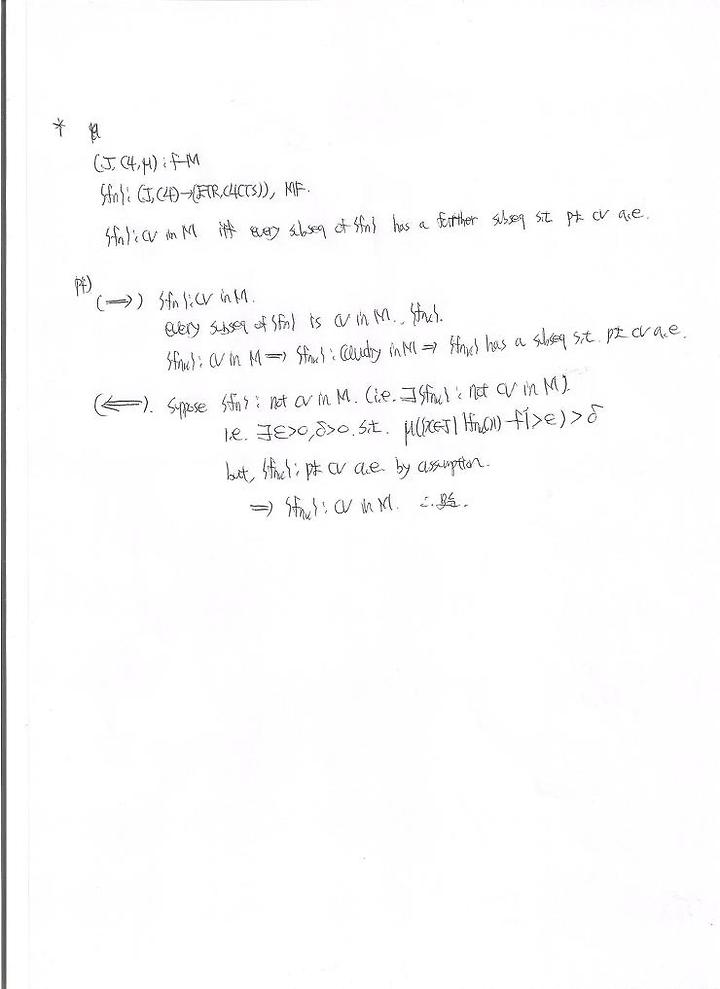 *
(J, C4, μ) : f-M
{fn} : (J, C4) → (ETR, C4CTS)), MF.
{fn} : CV in M iff every subseq of {fn} has a further subseq s.t. pt CV a.e.
pf)
(⟹) {fn} : CV in M.
every subseq of {fn} is CV in M., {fnk}.
{fnk} : CV in M ⟹ {fnk} : Cauchy in M ⟹ {fnk} has a subseq s.t. pt CV a.e.
(⟸). Suppose {fn} : not CV in M. (i.e. ∃{fnk} : not CV in M).
i.e. ∃ε>0, δ>0. s.t. μ({x∈J | |fnk(x) - f|>ε) > δ
but, {fnk} : pt CV a.e. by assumption.
⟹ {fnk} : CV in M. ∴